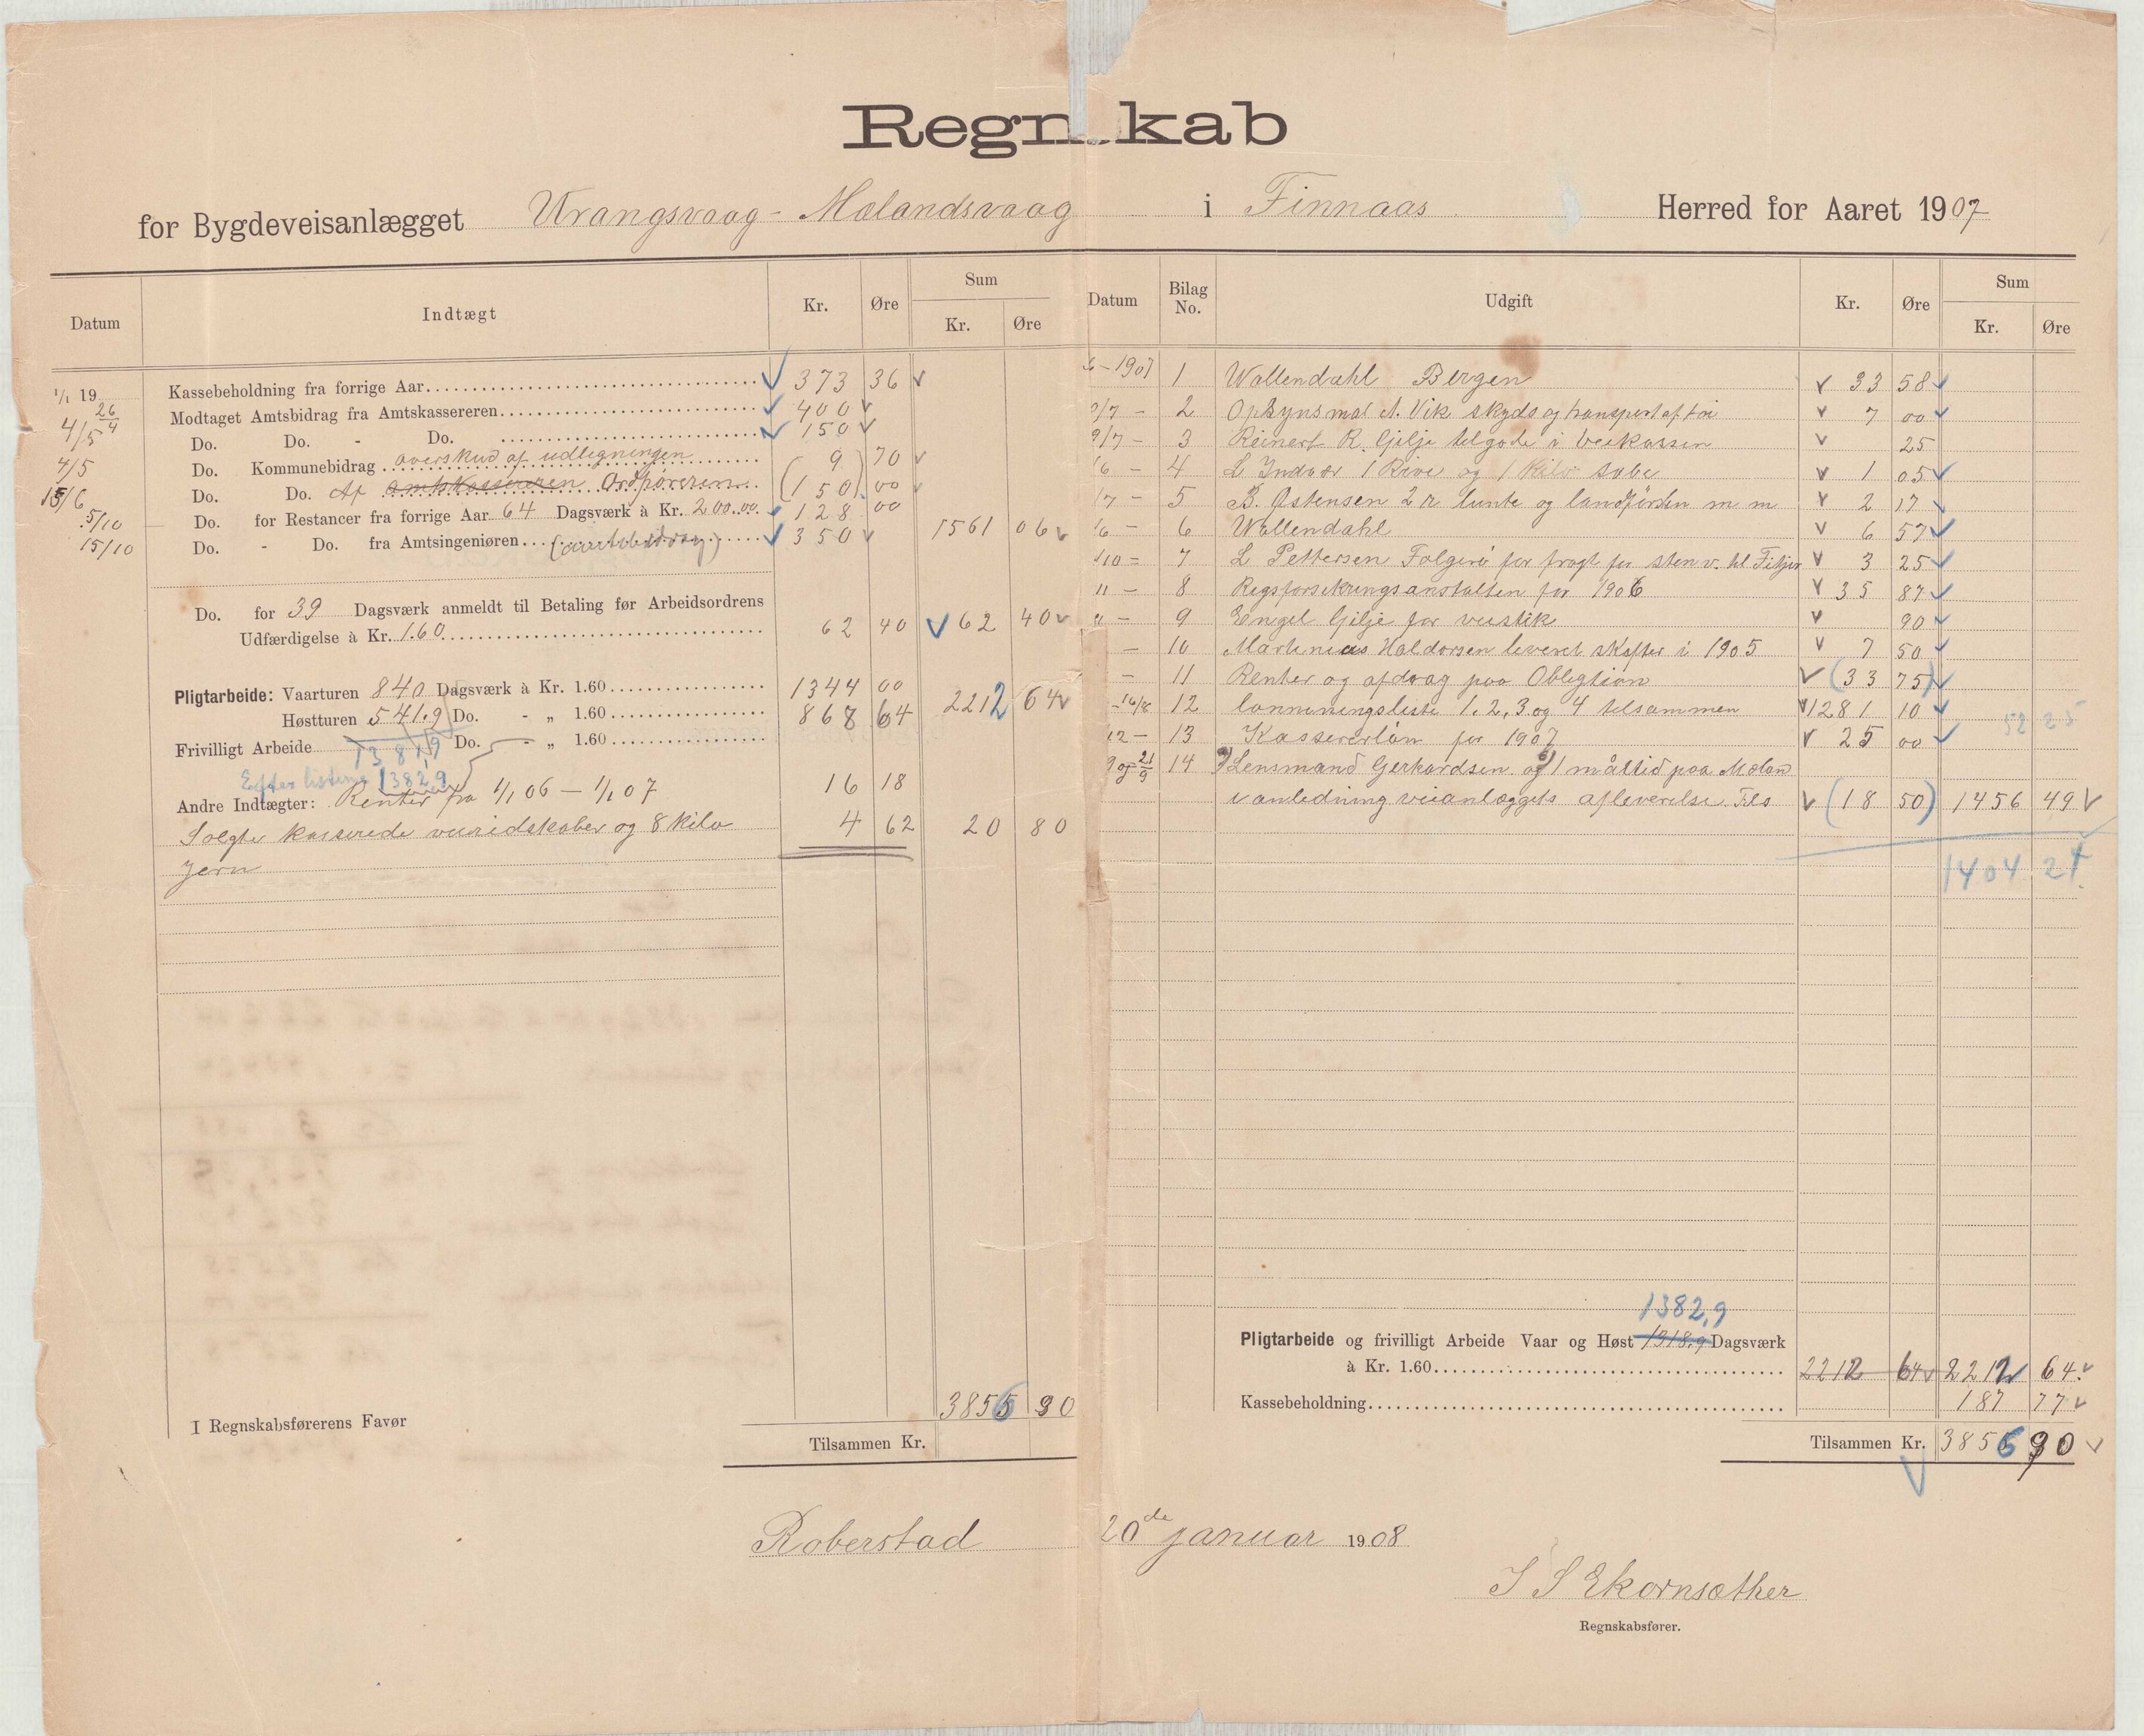 Regn kab
for Bygdeveisanlægget Urangsvaag - Mælandsvaag i Finnaas Herred for Aaret 1907
Datum Indtægt Kr. Øre Sum Kr. Øre
1/1 19 Kassebeholdning fra forrige Aar 373 36
4/5 26/4 Modtaget Amtsbidrag fra Amtskassereren 400
Do. Do. - Do. 150
4/5 Do. Kommunebidrag overskud af udligningen 9 70
15/6 Do. Do. Af amtskassereren Ordføreren (150) 00
5/10 Do. for Restancer fra forrige Aar 64 Dagsværk à Kr. 200.00 128 00
15/10 Do. - Do. fra Amtsingeniøren 350 1561 06
Do. for 39 Dagsværk anmeldt til Betaling før Arbeidsordrens
Udfærdigelse à Kr. 1.60 62 40 62 40
Pligtarbeide: Vaarturen 840 Dagsværk à Kr. 1.60 1344 00
Høstturen 541.9 Do. - „ 1.60 868 64 2212 64
Frivilligt Arbeide 1381,9 Do. - „ 1.60
Efter listerne 1382,9
Andre Indtægter: Renter fra 1/1 06 — 1/1 07 16 18
Solgte kasserede veiredskaber og 8 kilo 4 62 20 80
jern
I Regnskabsførerens Favør
3856 90
Tilsammen Kr.
Datum Bilag No. Udgift Kr. Øre Sum Kr. Øre
6 - 1907 1 Wallendahl Bergen 33 58
2/7 - 2 Opsynsmd A. Vik skyds og transport af 7 00
9/7 - 3 Reinert R. Gilje tilgode i veikassen 25
/6 - 4 L Indvær 1 Rive og 1 kilo sæbe 1 05
/7 - 5 B. Østensen 2 r lunte og m m 2 17
/6 - 6 Wallendahl 6 57
/10 - 7 L Pettersen Folgerø for fragt for sten v. til Fitjar 3 25
11 - 8 Rigsforsikringsanstalten for 1906 35 87
" - 9 Engel Gilje for veistik 90
- 10 Martinius Haldorsen leveret skafter i 1905 7 50
- 11 Renter og afdrag paa Obligtion (33 75)
- 16/8 12 lønningsliste 1. 2. 3 og 4 tilsammen 1281 10
12 - 13 Kassererløn for 1907 25 00 52 25
9 og 21/9 14 Lensmand Gerhardsen og 1 måltid paa Mæland
i anledning veianlæggets afleverelse. Tils (18 50) 1456 49
1404 24
1382,9
Pligtarbeide og frivilligt Arbeide Vaar og Høst 1318.9 Dagsværk
à Kr. 1.60 2212 64 2212 64
Kassebeholdning 187 77
Tilsammen Kr. 3856 90
Roberstad 20de januar 1908
I S Ekornsæther
Regnskabsfører.